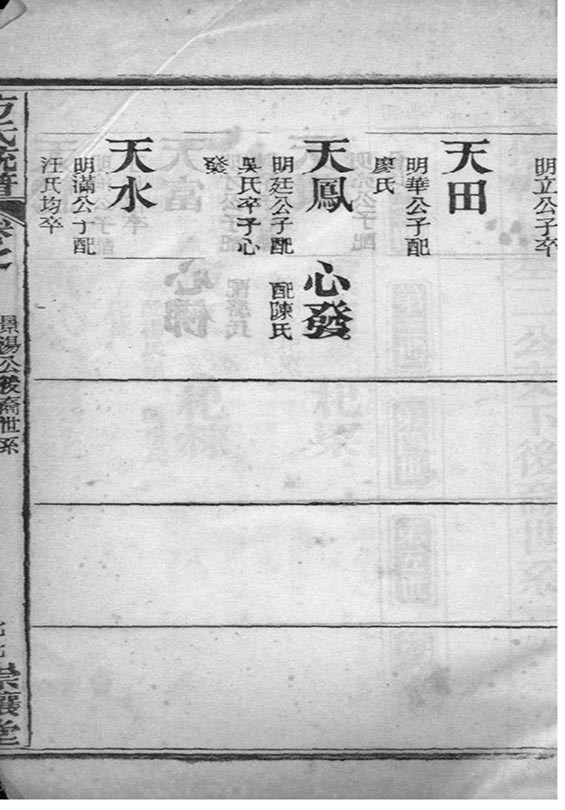 明立公子卒
天田
明華公子配
廖氏
天鳳
明廷公子配
吳氏卒子心
發
心發
配陳氏
天水
明滿公子配
汪氏均卒
方氏統譜
景湯公後裔世系
崇讓堂